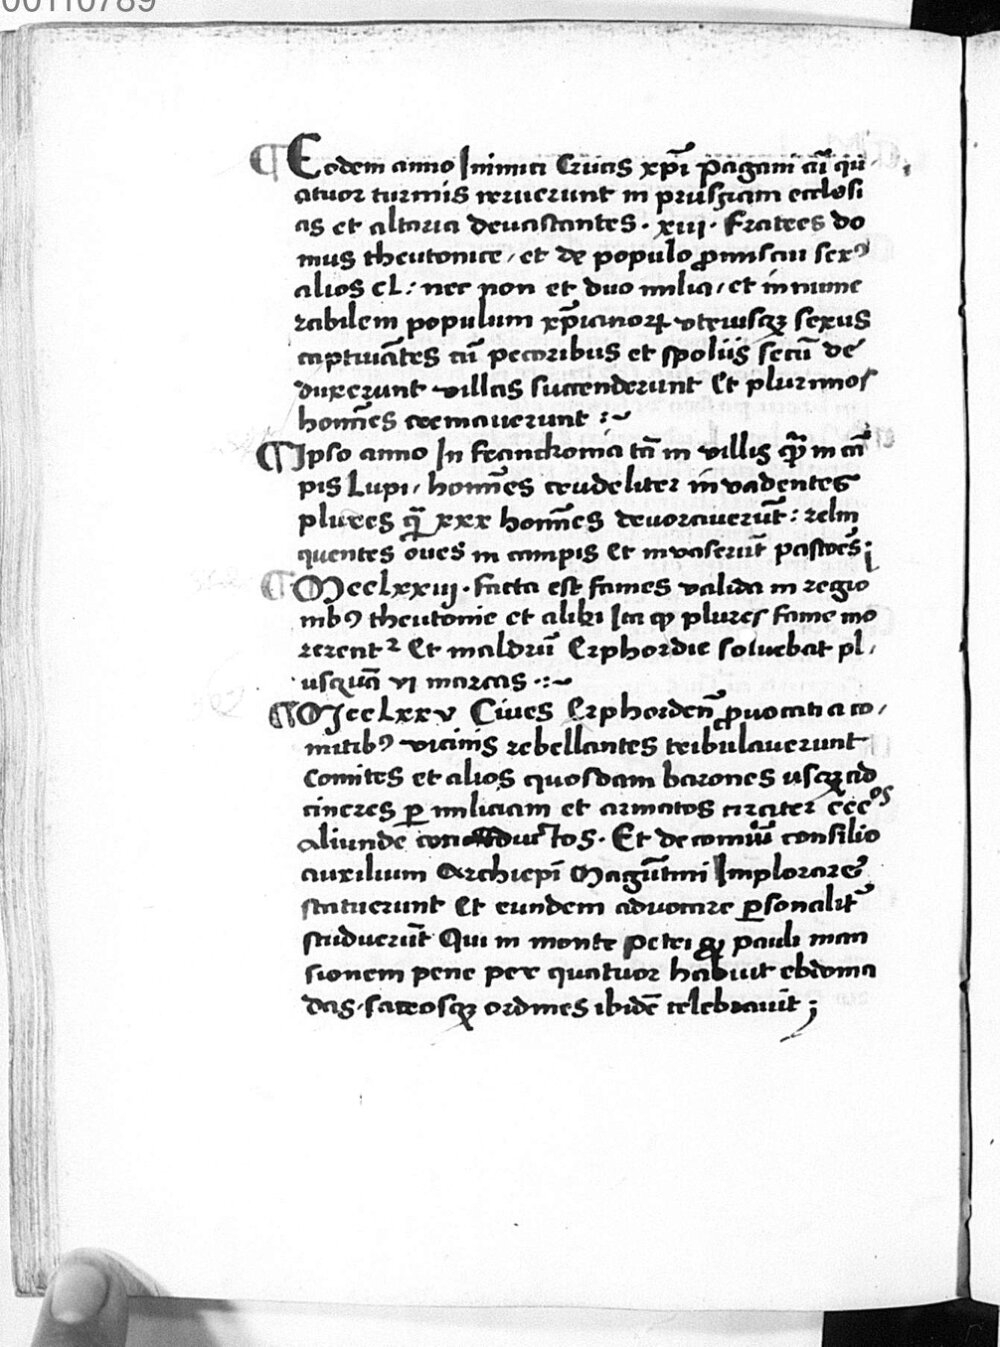 00110789
¶ Eodem anno Inimici Crucis xp̄i pagani cū qu
atuor turmis irruerunt in prusziam ecclesi
as et altaria deuastantes · xiij · fratres do
mus theutonice, et de populo ꝓmiscui sexꝰ
alios cl: nec non et duo milia, et innume
rabilem populum xp̄ianoꝝ vtriusqꝫ sexus
captiuātes cū pecoribus et spoliis secū de
duxerunt villas succenderunt Et plurimos
homīes cremauerunt :~
¶ Ipso anno In franckonia tā in villis qͣ̄ in cā
pis Lupi, homīes crudeliter invadentes
plures qͣ̄ xxx homīes deuorauerūt: relin
quentes oues in campis Et inuaserūt pastōes;
¶ Mcclxxiij · facta est fames valida in regio
nibꝰ theutonie et alibi Ita ꝙ plures fame mo
rerent᷑ Et maldrū Erphordie soluebat pl,
usquā vi marcas ·:~
¶ Mcclxxv Ciues Erphorden̄ ꝓuocati a co,
mitibꝰ vicinis rebellantes tribulauerunt
Comites et alios quosdam barones usqꝫ ad
cineres ꝑ miliciam et armatos circiter cccᵒˢ
aliunde conductos. Et de comūi consilio
auxilium Archiepi Magūtini Implorare
statuerunt Et eundem aduocare ꝑsonalit̄
studuerūt Qui in monte petri et pauli man
sionem pene per quatuor habuit ebdoma
das · sacrosqꝫ ordines ibidē celebrauit;